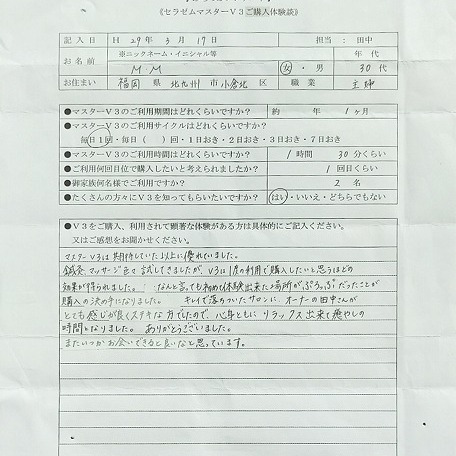 《セラゼムマスターV3ご購入体験談》
記入日 H 29年 3月 17日 担当：田中
お名前 ※ニックネーム・イニシャル等 年代
M・M 女・男 30代
お住まい 福岡 県 北九州 市 小倉北 区 職業 主婦
●マスターV3のご利用期間はどれくらいですか？ 約 年 1ヶ月
●マスターV3のご利用サイクルはどれくらいですか？
毎日1回・毎日（ ）回・1日おき・2日おき・3日おき・7日おき
●マスターV3のご利用時間はどれくらいですか？ 1時間 30分くらい
●ご利用何回目位で購入したいと考えられましたか？ 1回目くらい
●御家族何名様でご利用ですか？ 2名
●たくさんの方々にV3を知ってもらいたいですか？ はい・いいえ・どちらでもない
●V3をご購入、利用されて顕著な体験がある方は具体的にご記入ください。
又はご感想をお聞かせください。
マスターV3は期待していた以上に優れていました。
鍼灸、マッサージ全て試してきましたが、V3は1度の利用で購入したいと思うほどの
効果が得られました。 なんと言っても初めて体験出来た場所が、ぷらっぷだったことが
購入の決め手になりました。 キレイで落ちついたサロンに、オーナーの田中さんが
とても感じが良くステキな方でしたので、心身ともにリラックス出来て癒やしの
時間となりました。ありがとうございました。
またいつかお会いできると良いなと思っています。